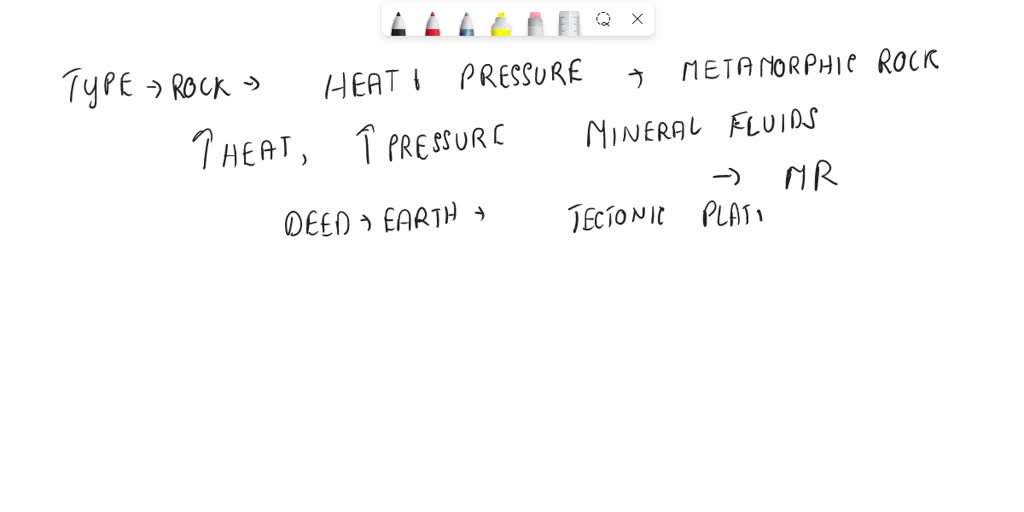 TYPE → ROCK → HEAT & PRESSURE → METAMORPHIC ROCK
↑ HEAT, ↑ PRESSURE MINERAL FLUIDS
→ MR
DEED → EARTH → TECTONIC PLATI